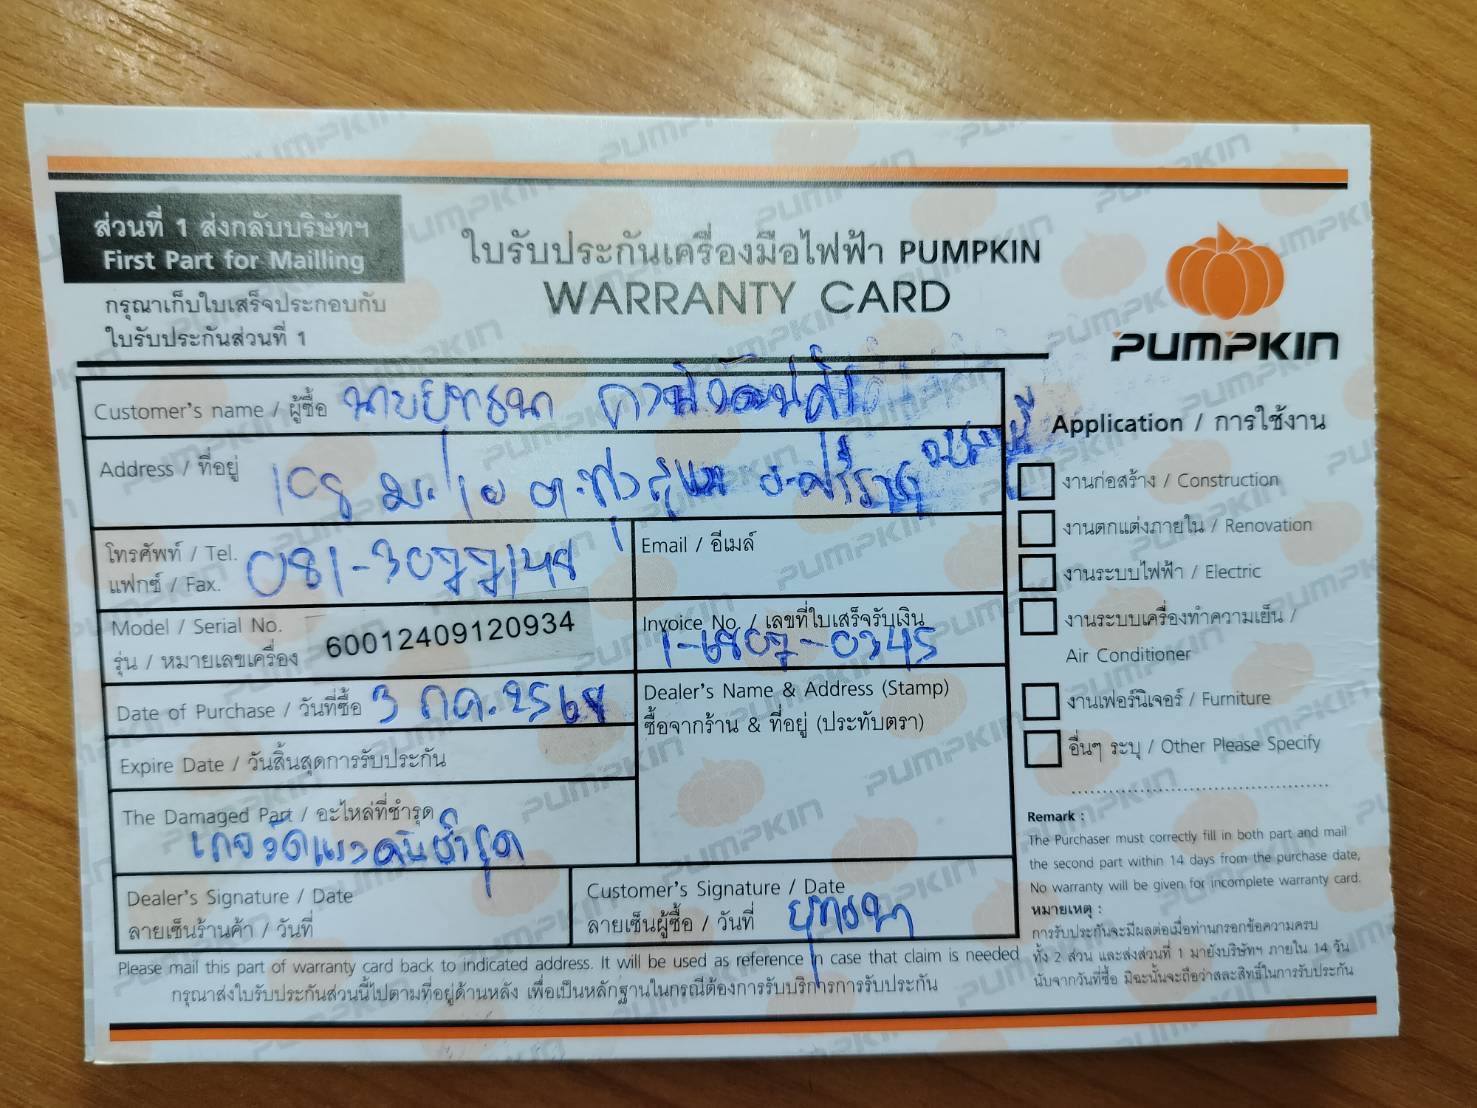 ส่วนที่ 1 ส่งกลับบริษัทฯ
First Part for Mailling
กรุณาเก็บใบเสร็จประกอบกับ
ใบรับประกันส่วนที่ 1
ใบรับประกันเครื่องมือไฟฟ้า PUMPKIN
WARRANTY CARD
PUMPKIN
Customer's name / ผู้ซื้อ นายยุทธนา
Address / ที่อยู่ ม.
โทรศัพท์ / Tel.
แฟกซ์ / Fax.
Email / อีเมล์
Model / Serial No.
รุ่น / หมายเลขเครื่อง 60012409120934
Invoice No. / เลขที่ใบเสร็จรับเงิน
Date of Purchase / วันที่ซื้อ 3 กค. 2568
Dealer's Name & Address (Stamp)
ซื้อจากร้าน & ที่อยู่ (ประทับตรา)
Expire Date / วันสิ้นสุดการรับประกัน
The Damaged Part / อะไหล่ที่ชำรุด
เกจวัดแรงดันชำรุด
Dealer's Signature / Date
ลายเซ็นร้านค้า / วันที่
Customer's Signature / Date
ลายเซ็นผู้ซื้อ / วันที่ ยุทธนา
Please mail this part of warranty card back to indicated address. It will be used as reference in case that claim is needed
กรุณาส่งใบรับประกันส่วนนี้ไปตามที่อยู่ด้านหลัง เพื่อเป็นหลักฐานในกรณีต้องการรับบริการการรับประกัน
Application / การใช้งาน
งานก่อสร้าง / Construction
งานตกแต่งภายใน / Renovation
งานระบบไฟฟ้า / Electric
งานระบบเครื่องทำความเย็น /
Air Conditioner
งานเฟอร์นิเจอร์ / Furniture
อื่นๆ ระบุ / Other Please Specify
Remark :
The Purchaser must correctly fill in both part and mail
the second part within 14 days from the purchase date,
No warranty will be given for incomplete warranty card.
หมายเหตุ :
การรับประกันจะมีผลต่อเมื่อท่านกรอกข้อความครบ
ทั้ง 2 ส่วน และส่งส่วนที่ 1 มายังบริษัทฯ ภายใน 14 วัน
นับจากวันที่ซื้อ มิฉะนั้นจะถือว่าสละสิทธิ์ในการรับประกัน